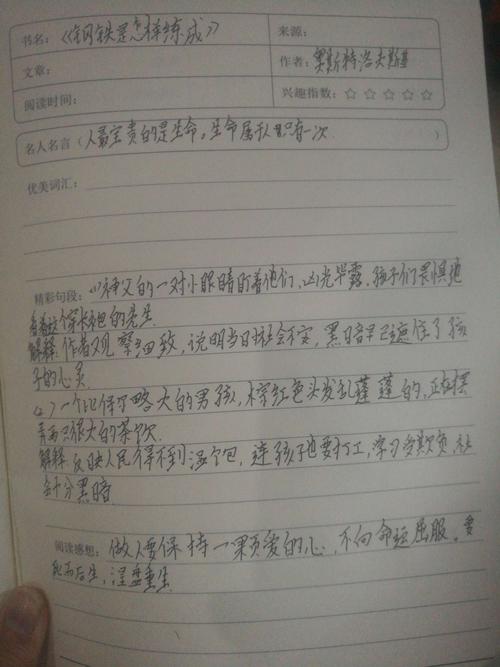 书名：《钢铁是怎样练成》
来源：
文章：
作者：奥斯特洛夫斯基
阅读时间：
兴趣指数：☆☆☆☆☆
名人名言（人最宝贵的是生命。生命属于人只有一次 ）
优美词汇：
精彩句段：(1)神父的一对小眼睛盯着他们，凶光毕露。孩子们畏惧地
看着这个穿长袍的先生
解释：作者观察细致，说明当时社会不安，黑暗早已遮住了孩
子的心灵
(2)一个比保尔略大的男孩，棕红色头发乱蓬蓬的，正在摆
弄两只很大的茶炊
解释：反映人民得不到温饱，连孩子也要打工，
社
会十分黑暗
阅读感想：做人要保持一颗爱的心，不向命运屈服。要
死而后生，涅盘重生